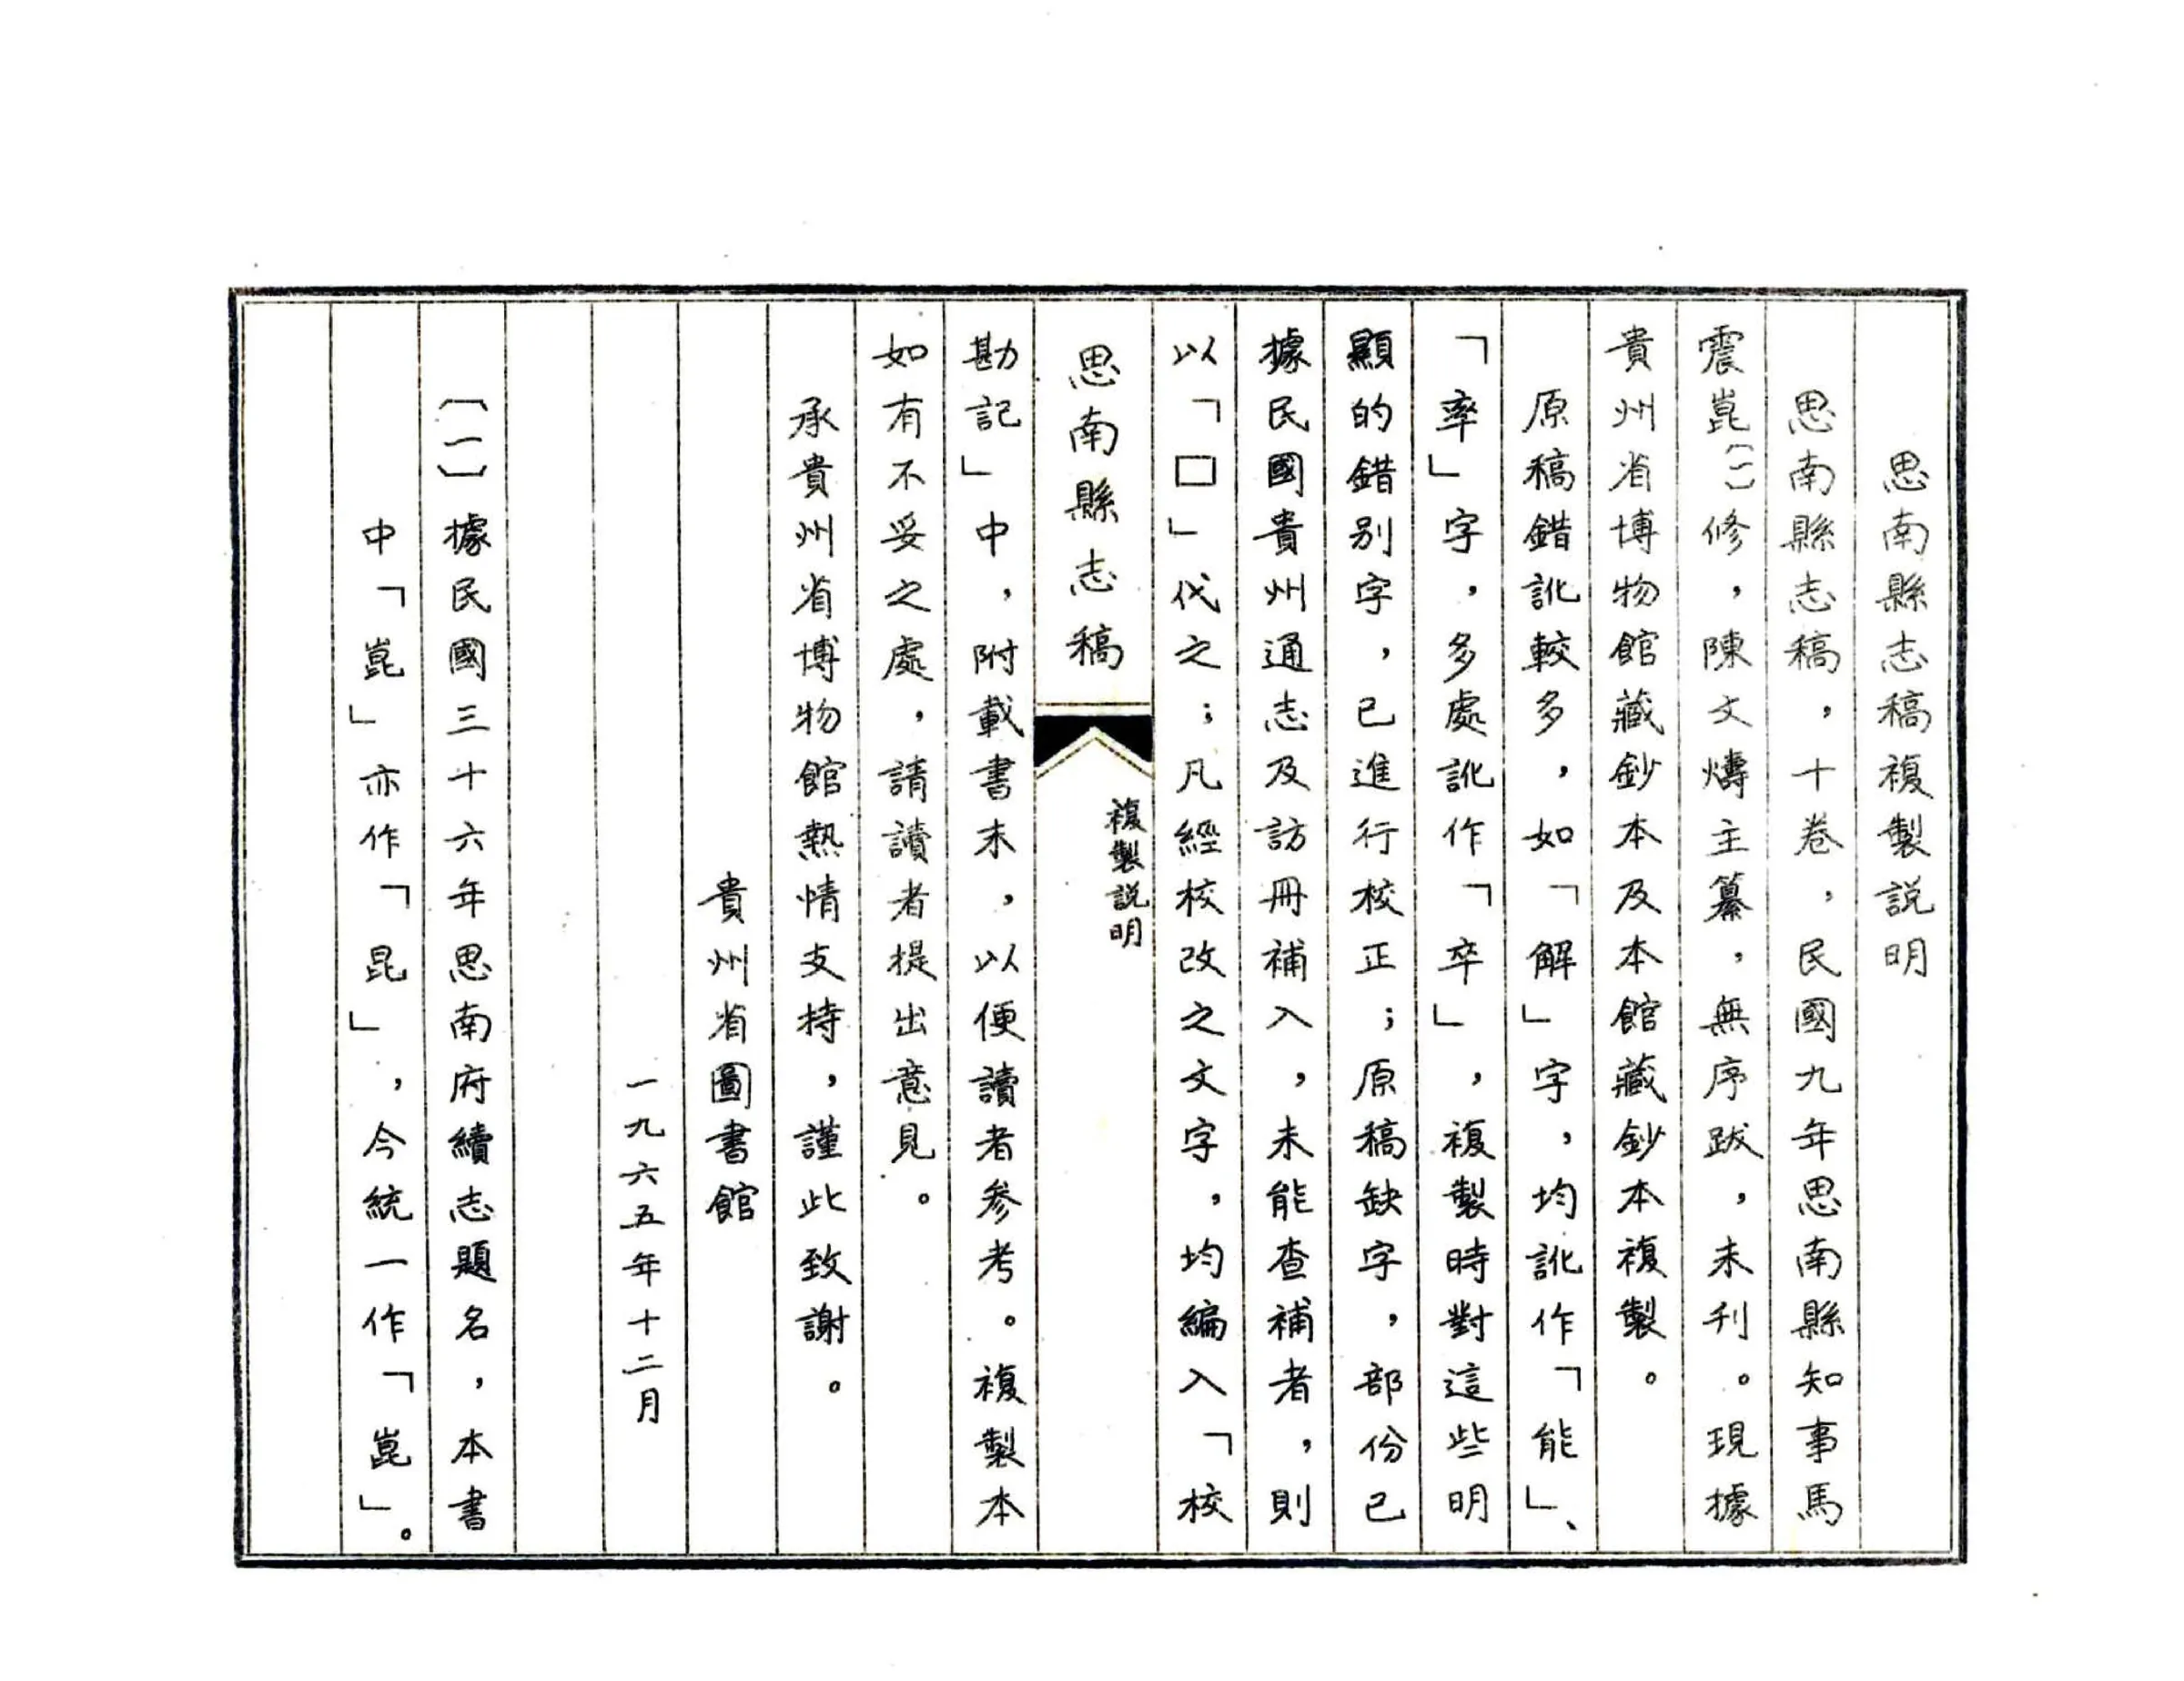 思南縣志稿複製説明
思南縣志稿，十卷，民國九年思南縣知事馬
震崑〔一〕修，陳文燽主纂，無序跋，未刋。現據
貴州省博物館藏鈔本及本館藏鈔本複製。
原稿錯訛較多，如「解」字，均訛作「能」、
「率」字，多處訛作「卒」，複製時對這些明
顯的錯别字，已進行校正；原稿缺字，部份已
據民國貴州通志及訪冊補入，未能查補者，則
以「□」代之；凡經校改之文字，均編入「校
思南縣志稿
複製説明
勘記」中，附載書末，以便讀者参考。複製本
如有不妥之處，請讀者提出意見。
承貴州省博物館熱情支持，謹此致謝。
貴州省圖書館
一九六五年十二月
〔一〕據民國三十六年思南府續志題名，本書
中「崑」亦作「昆」，今統一作「崑」。